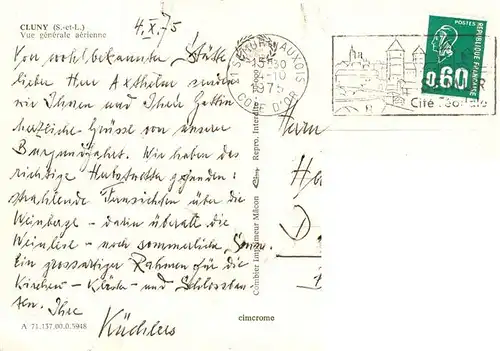 CLUNY (S.-et-L.)
Vue générale aérienne
4.X.75
Von wohlbekannter Stätte
lieber Herr Axthelm senden
wir Ihnen und Ihrer Gattin
herzliche Grüsse von unserer
Burgundfahrt. Wir haben das
richtige Herbstwetter gefunden:
strahlende Fernsichten über die
Weinberge – darin überall die
Weinlese – noch sommerliche Sonne.
Ein grossartiger Rahmen für die
Kirchen- Klöster- und Schlossbau-
ten. Ihre
Küchlers
A 71.137.00.0.5948
Combier Imprimeur Mâcon
Repro. Interdite
cimcrome
SEMUR EN AUXOIS
COTE D'OR
Cité Féodale
POSTES
REPUBLIQUE FRANCAISE
0,60
Herrn